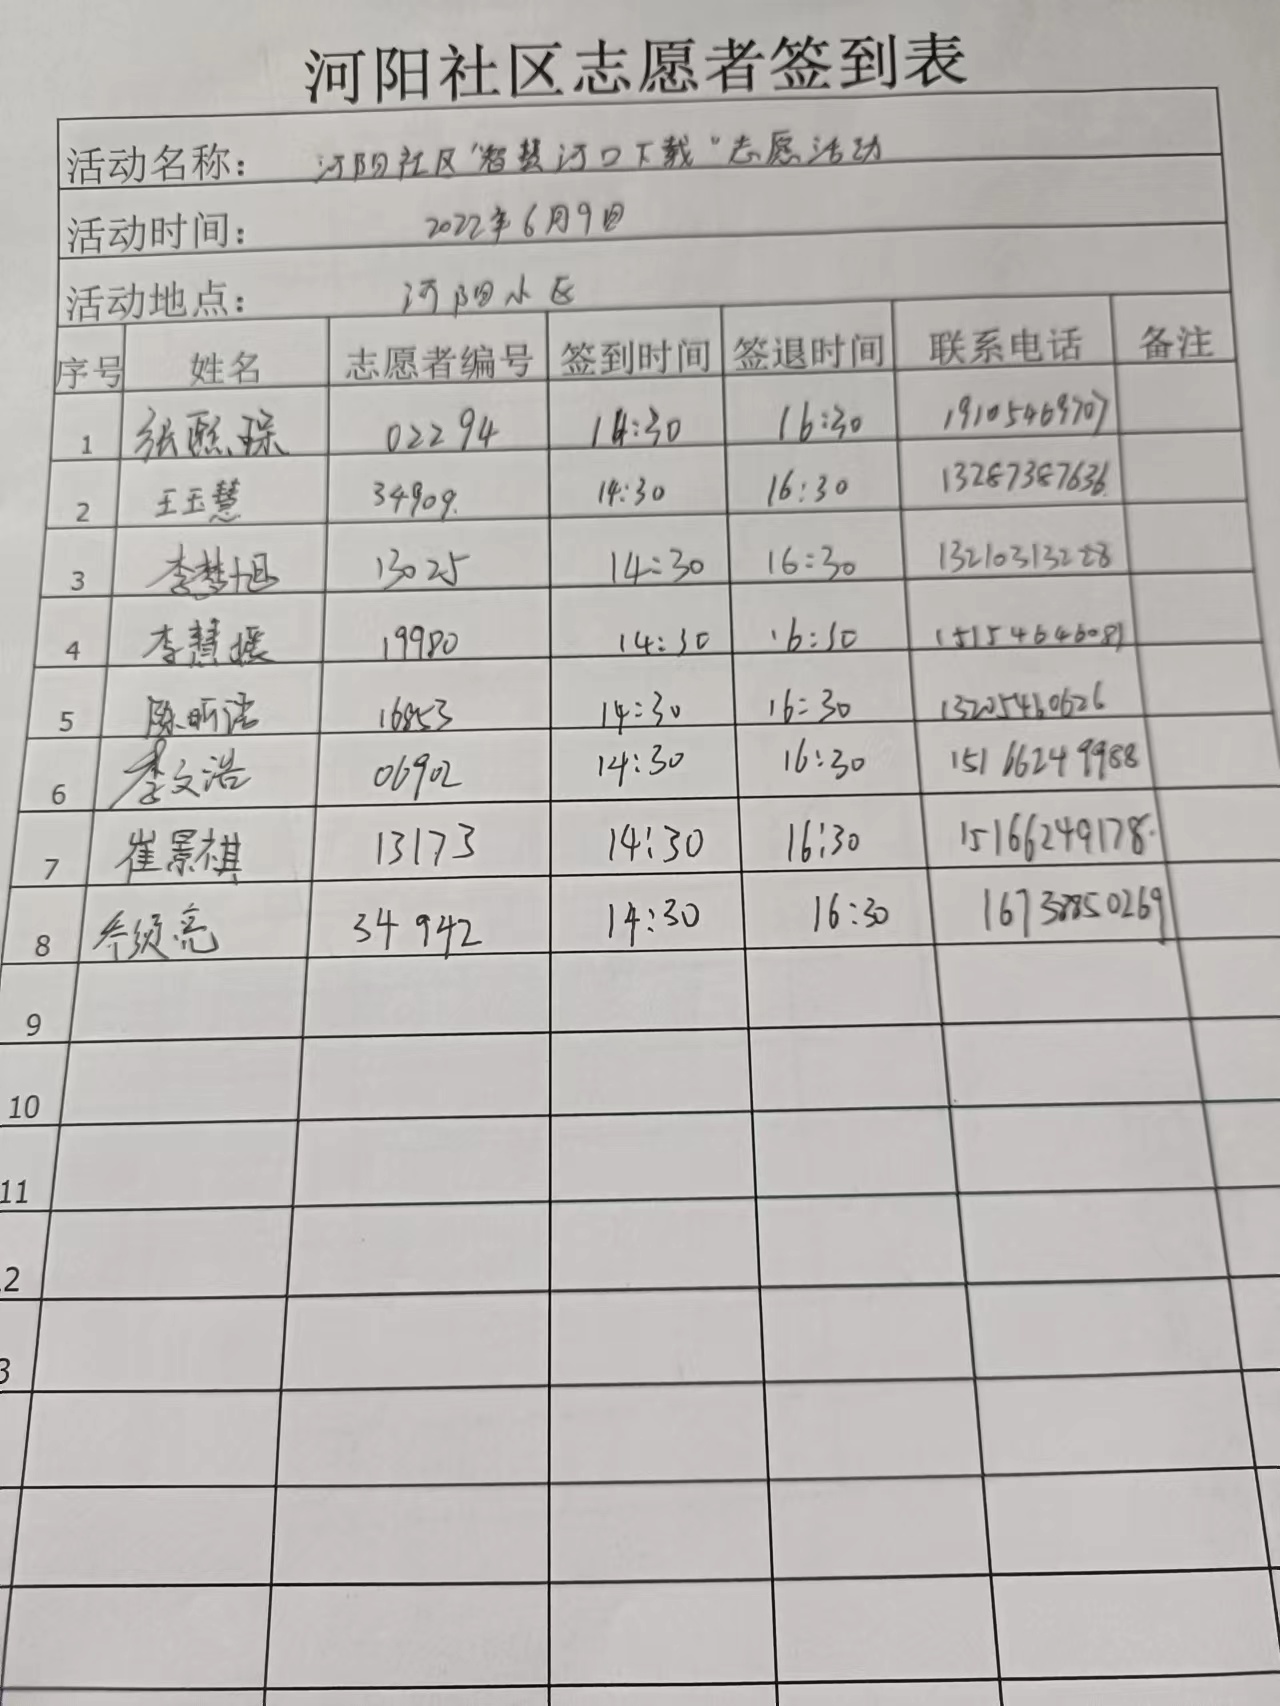 河阳社区志愿者签到表
活动名称： 河阳社区"智慧河口下载"志愿活动
活动时间： 2022年6月9日
活动地点： 河阳小区
序号 姓名 志愿者编号 签到时间 签退时间 联系电话 备注
1 张熙琛 02294 14:30 16:30 19105469707
2 王玉慧 34909. 14:30 16:30 13287387636
3 李梦旭 13025 14:30 16:30 13210313228
4 李慧援 19980 14:30 16:30 15154646081
5 陈昕洁 16853 14:30 16:30 13205460626
6 李文浩 06902 14:30 16:30 15166249988
7 崔景祺 13173 14:30 16:30 15166249178.
8 亮 34942 14:30 16:30 16738850269
9
10
11
2
3